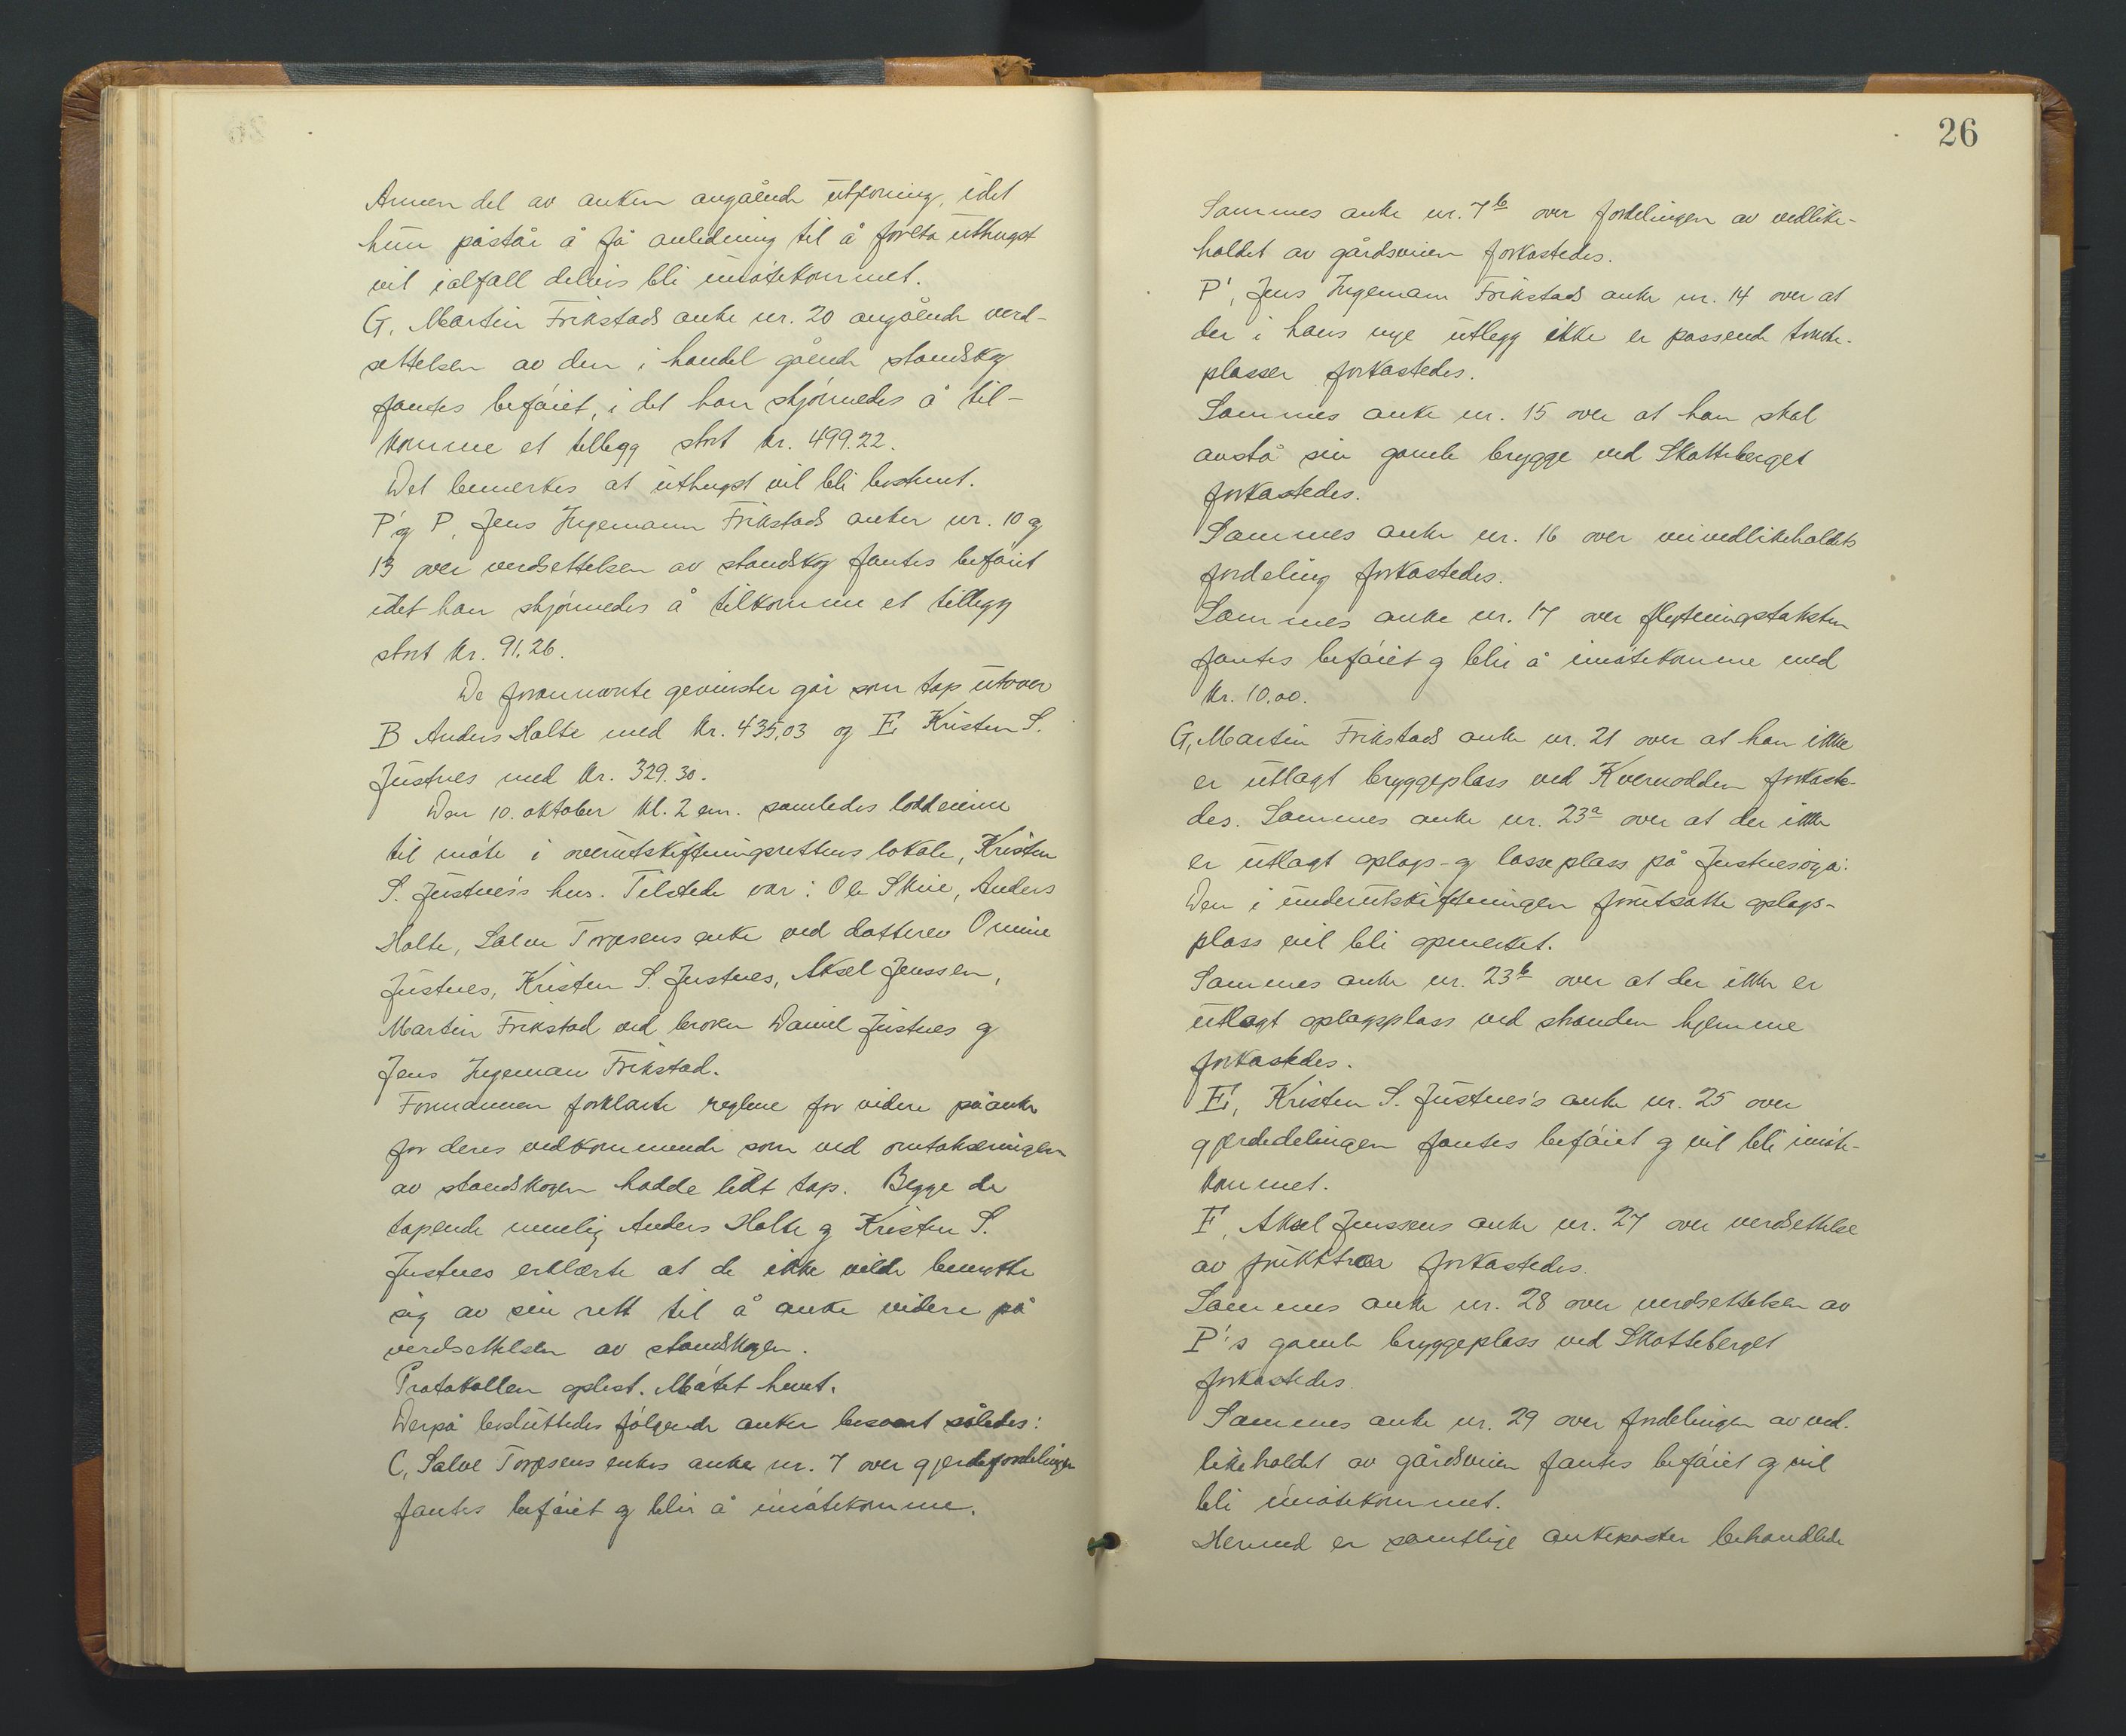 Annen del av anken angående utjevning, idet
hun påstår å få anledning til å foreta uthugst
vil ialfall delvis bli imøtekommet.
G, Martin Frikstads anke nr. 20 angående verd-
settelsen av den i handel gående standskog
fantes beføiet, i det han skjønnedes å til-
komme et tillegg stort kr. 499.22.
Det bemerkes at uthugst vil bli bestemt.
P' og P, Jens Ingemann Frikstads anker nr. 10 og
13 over verdsettelsen av standskog fantes beføiet
idet han skjønnedes å tilkomme et tillegg
stort kr. 91,26.
De forannevnte gevinster går som tap utover
B Anders Holte med kr. 435,03 og E, Kristen S.
Justnes med kr. 329.30.
Den 10. oktober kl. 2 em. samledes loddeierne
til møte i overutskiftningsrettens lokale, Kristen
S. Justnes's hus. Tilstede var: Ole Skeie, Anders
Holte, Salve Torjesens enke ved datteren Omine
Justnes, Kristen S. Justnes, Aksel Jenssen,
Martin Frikstad ved broren Daniel Justnes og
Jens Ingeman Frikstad.
Formannen forklarte reglene for videre påanke
for deres vedkommende som ved omtakseringen
av standskogen hadde lidt tap. Begge de
tapende nemlig Anders Holte og Kristen S.
Justnes erklærte at de ikke vilde benytte
sig av sin rett til å anke videre på
verdsettelsen av standskogen.
Protokollen oplest. Møtet hevet.
Derpå besluttedes følgende anker besvart således:
C, Salve Torjesens enkes anke nr. 7 over gjerdefordelingen
fantes beføiet og blir å imøtekomme.
26
Sammes anke nr. 7b over fordelingen av vedlike-
holdet av gårdsveien forkastedes.
P', Jens Ingemann Frikstads anke nr. 14 over at
der i hans nye utlegg ikke er passende tomte-
plasser forkastedes.
Sammes anke nr. 15 over at han skal
avstå sin gamle brygge ved Skotteberget
forkastedes.
Sammes anke nr. 16 over veivedlikeholdets
fordeling forkastedes.
Sammes anke nr. 17 over flytningstaksten
fantes beføiet og blir å imøtekomme med
kr. 10.00.
G, Martin Frikstads anke nr. 21 over at han ikke
er utlagt bryggeplass ved Kvernodden forkaste-
des. Sammes anke nr. 23a over at der ikke
er utlagt oplags- og losseplass på Justnesøya:
Den i underutskiftningen forutsatte oplags-
plass vil bli opmerket.
Sammes anke nr. 23b over at der ikke er
utlagt oplagsplass ved stranden hjemme
forkastedes.
E, Kristen S. Justnes's anke nr. 25 over
gjerdedelingen fantes beføiet og vil bli imøte-
kommet.
F, Aksel Jenssens anke nr. 27 over verdsettelse
av frukttrær forkastedes.
Sammes anke nr. 28 over verdsettelsen av
P's gamle bryggeplass ved Skotteberget
forkastedes
Sammes anke nr. 29 over fordelingen av ved-
likeholdet av gårdsveien fantes beføiet og vil
bli imøtekommet.
Hermed er samtlige ankeposter behandlede